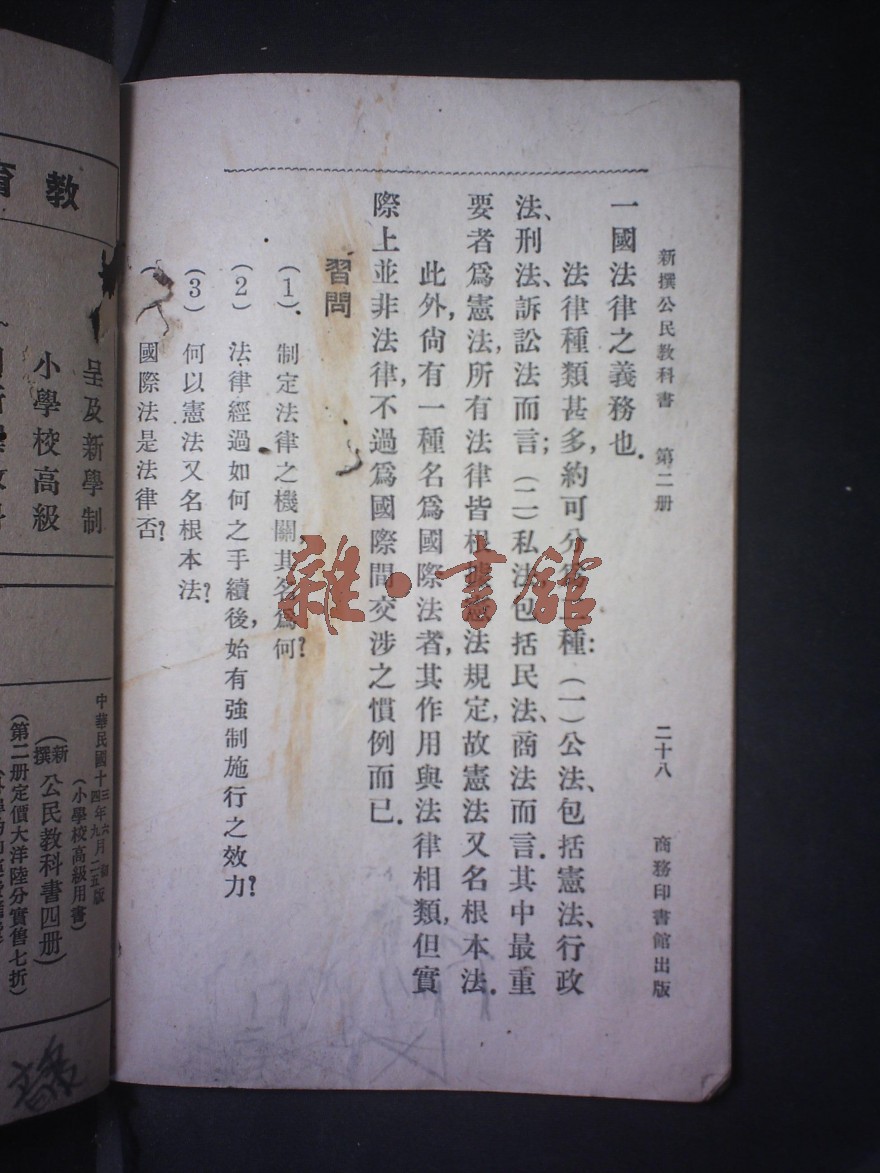 新撰公民教科書 第二册 二十八 商務印書館出版
一國法律之義務也.
法律種類甚多,約可分為二種:(一)公法、包括憲法、行政
法、刑法、訴訟法而言;(二)私法,包括民法、商法而言.其中最重
要者爲憲法,所有法律皆根據憲法規定,故憲法又名根本法.
此外,尙有一種名爲國際法者,其作用與法律相類,但實
際上並非法律,不過爲國際間交涉之慣例而已.
習問
(1). 制定法律之機關,其名爲何?
(2) 法律經過如何之手續後,始有強制施行之效力?
(3) 何以憲法又名根本法?
國際法是法律否?
雜·書館
教育
呈及新學制
小學校高級
中華民國十
(小學校高級用書)
新撰 公民教科書四册)
(第二册定價大洋陸分實售七折)